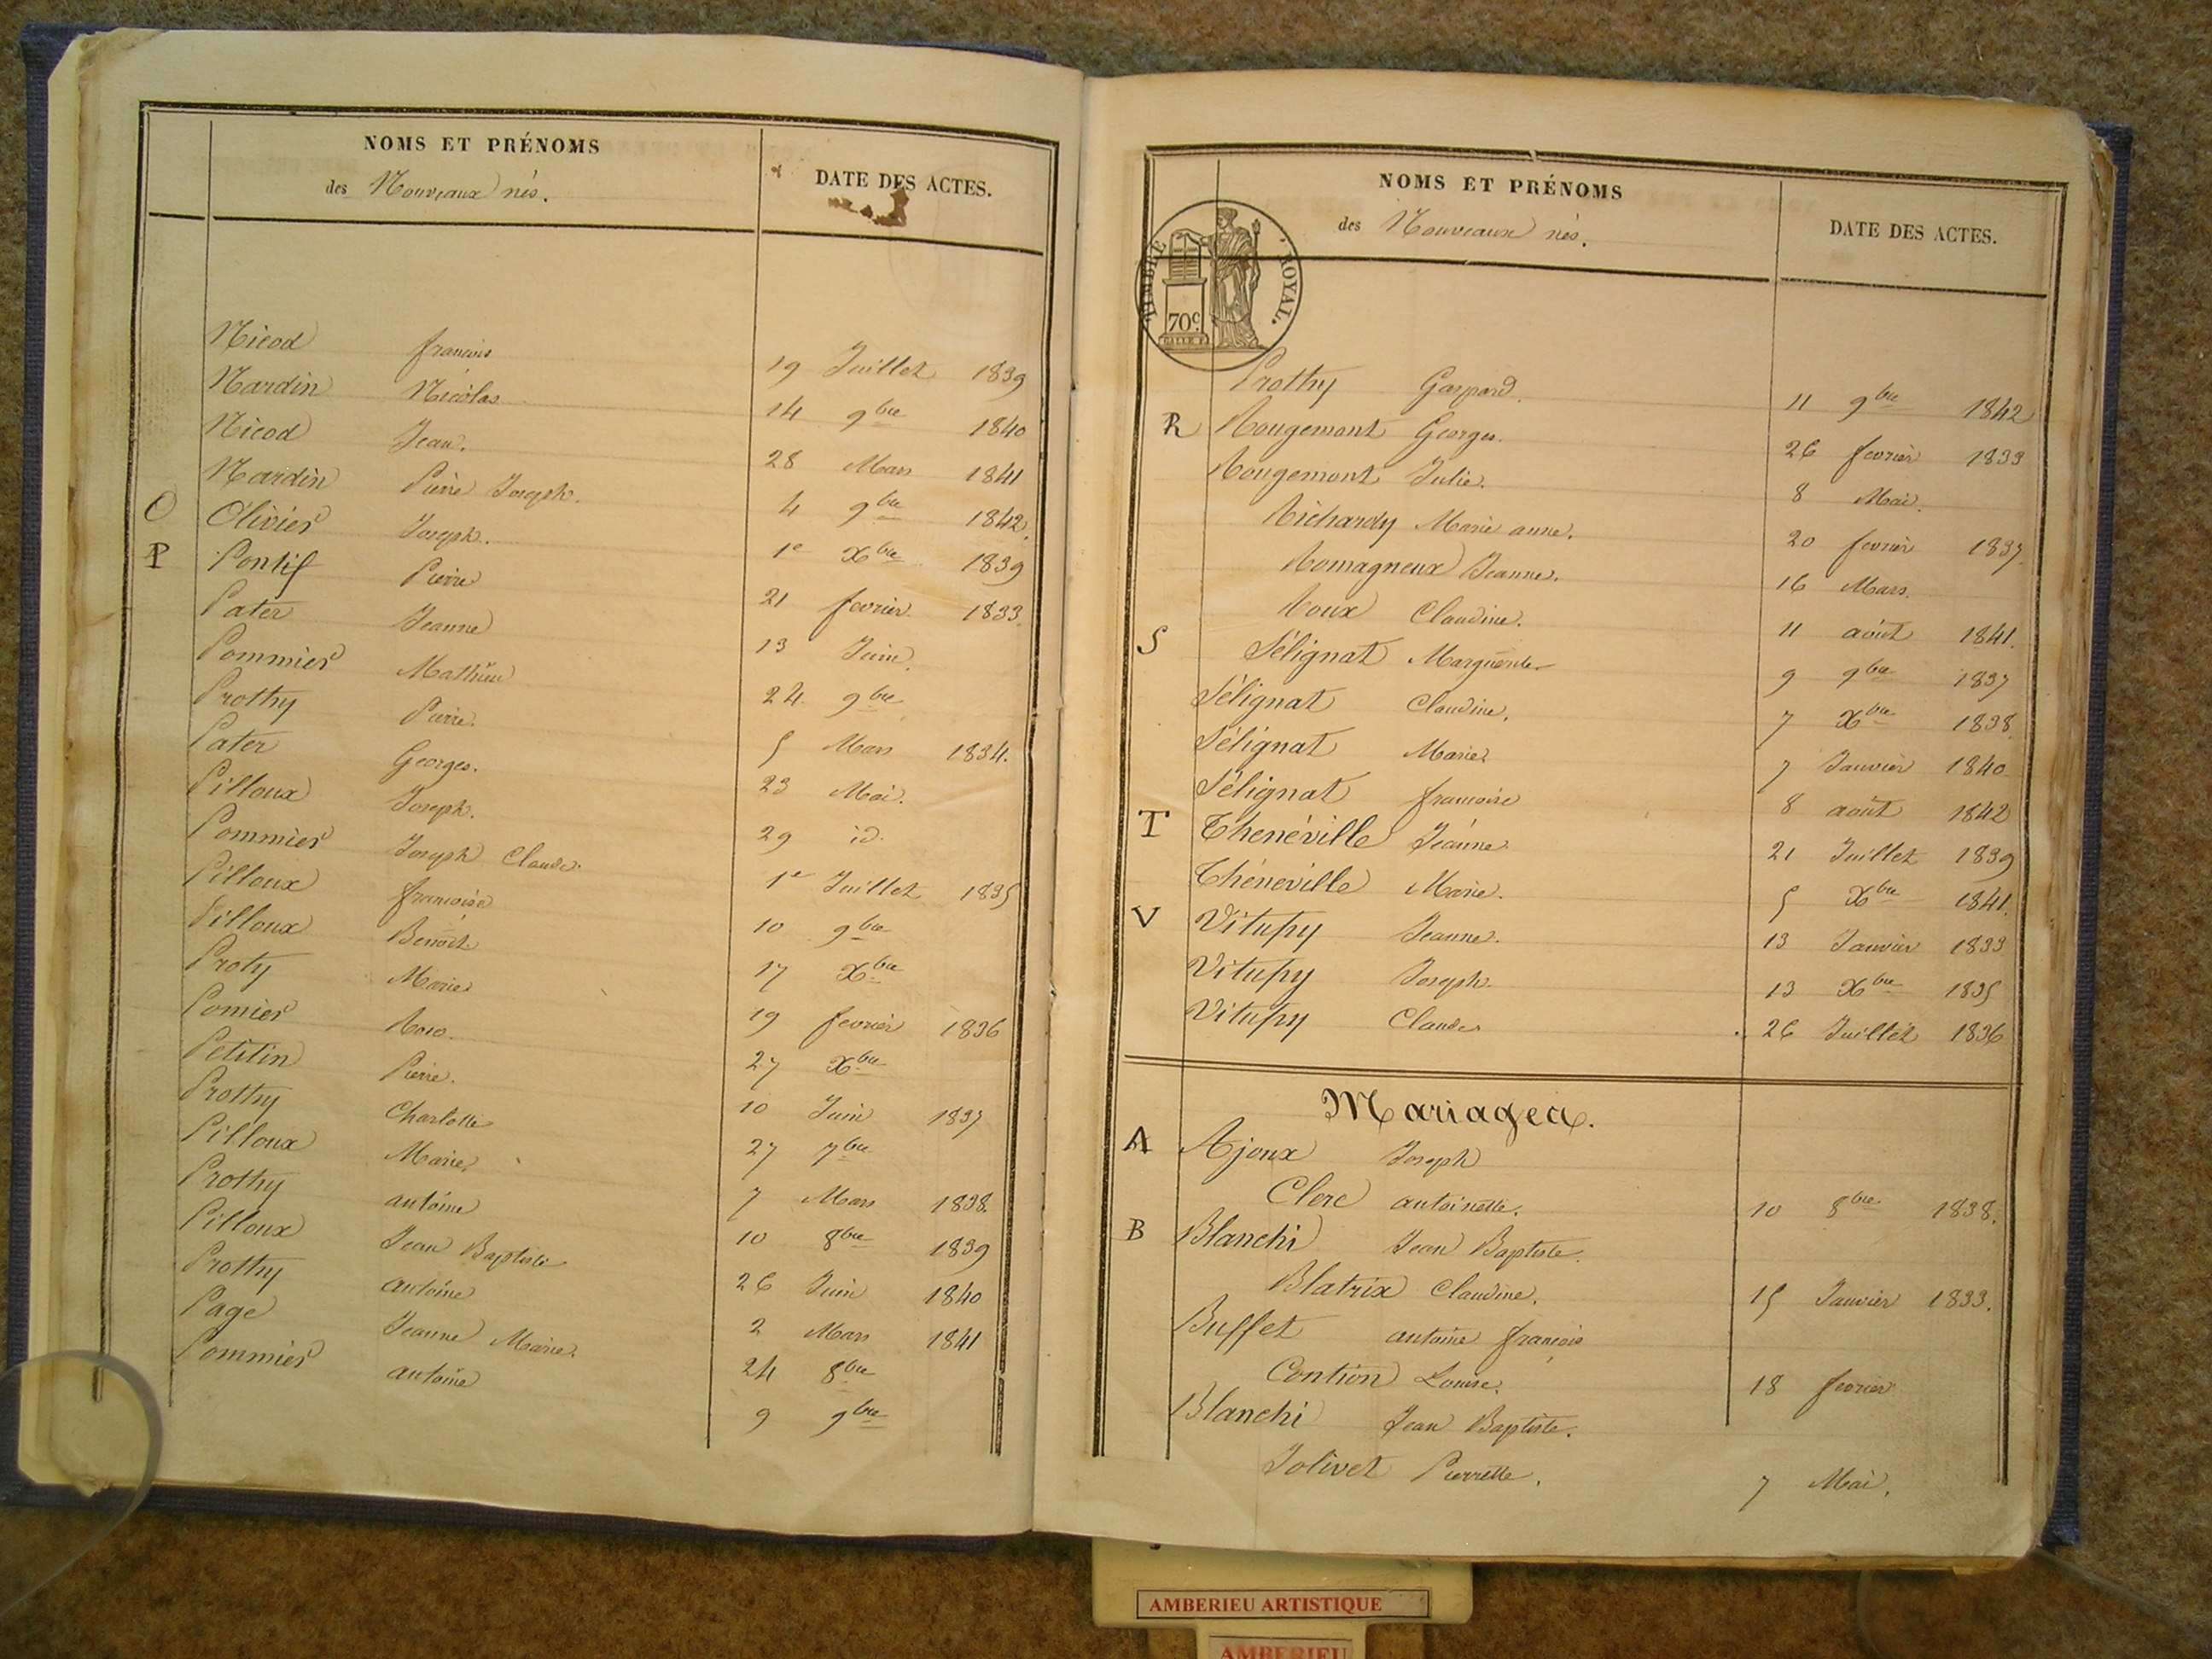 NOMS ET PRÉNOMS
des Nouveaux nés.
DATE DES ACTES.
Nicod françois 19 Juillet 1839
Nardin Nicolas 14 9bre 1840
Nicod Jean. 28 Mars 1841
Nardin Pierre Joseph. 4 9bre 1842.
O Olivier Joseph. 1e Xbre 1839
P Pontif Pierre 21 fevrier 1833.
Pater Jeanne 13 Juin.
Pommier Mathieu 24 9bre
Prothy Pierre. 5 Mars 1834.
Pater Georges. 23 Mai.
Pilloux Joseph. 29 id.
Pommier Joseph Claude. 1e Juillet 1835
Pilloux françoise 10 9bre
Pilloux Benoit 17 Xbre
Proty Marie 19 fevrier 1836
Pomier 27 Xbre
Petitin Pierre. 10 Juin 1837
Prothy Charlotte 27 7bre
Pilloux Marie. 7 Mars 1838.
Prothy antoine 10 8bre 1839
Pilloux Jean Baptiste 26 Juin 1840
Prothy antoine 2 Mars 1841
Page Jeanne Marie. 24 8bre
Pommier antoine 9 9bre
NOMS ET PRÉNOMS
des Nouveaux nés.
DATE DES ACTES.
TIMBRE ROYAL.
70c
Prothy Gaspard. 11 9bre 1842
R Rougemont Georges. 26 fevrier 1833
Rougemont Julie. 8 Mai.
Richardy Marie anne. 20 fevrier 1837.
Romagneux Jeanne. 16 Mars.
Roux Claudine. 11 août 1841.
S Sélignat Marguerite 9 9bre 1837
Sélignat Claudine. 7 Xbre 1838.
Sélignat Marie 7 Janvier 1840
Sélignat françoise 8 août 1842
T Thenéville Jeanne 21 Juillet 1839
Théneville Marie. 5 Xbre 1841.
V Vitupy Jeanne. 13 Janvier 1833
Vitupy Joseph. 13 Xbre 1835
Vitupy Claude 26 Juillet 1836
Mariages.
A Ajoux Joseph
Clerc antoinette. 10 8bre 1838.
B Blanchi Jean Baptiste.
Blatrix Claudine. 15 Janvier 1833.
Buffet antoine françois
Contion Louise. 18 fevrier
Blanchi Jean Baptiste.
Jolivet Pierrette. 7 Mai.
AMBERIEU ARTISTIQUE
AMBERIEU